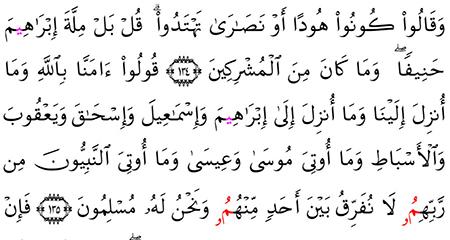 وَقَالُوا۟ كُونُوا۟ هُودًا أَوْ نَصَـٰرَىٰ تَهْتَدُوا۟ ۗ قُلْ بَلْ مِلَّةَ إِبْرَٰهِيمَ
حَنِيفًا ۖ وَمَا كَانَ مِنَ ٱلْمُشْرِكِينَ ﴿١٣٤﴾ قُولُوٓا۟ ءَامَنَّا بِٱللَّهِ وَمَا
أُنزِلَ إِلَيْنَا وَمَا أُنزِلَ إِلَىٰ إِبْرَٰهِيمَ وَإِسْمَـٰعِيلَ وَإِسْحَـٰقَ وَيَعْقُوبَ
وَٱلْأَسْبَاطِ وَمَا أُوتِىَ مُوسَىٰ وَعِيسَىٰ وَمَا أُوتِىَ ٱلنَّبِيُّونَ مِن
رَّبِّهِمُۥ لَا نُفَرِّقُ بَيْنَ أَحَدٍ مِّنْهُمُۥ وَنَحْنُ لَهُۥ مُسْلِمُونَ ﴿١٣٥﴾ فَإِنْ